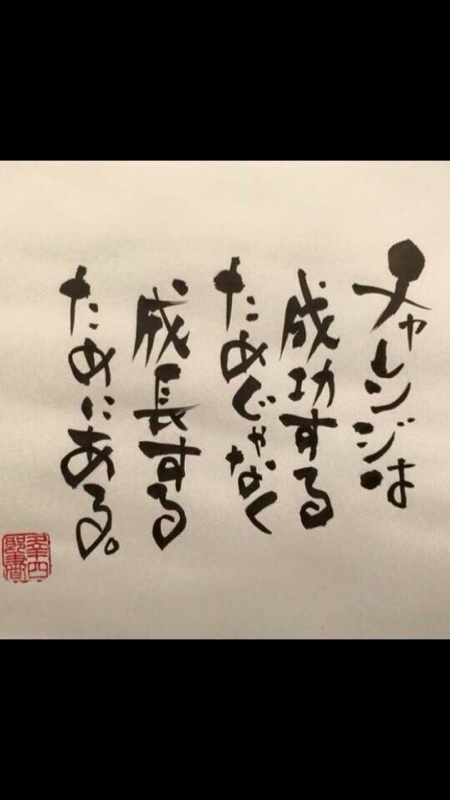 チャレンジは
成功する
ためじゃなく
成長する
ためにある。